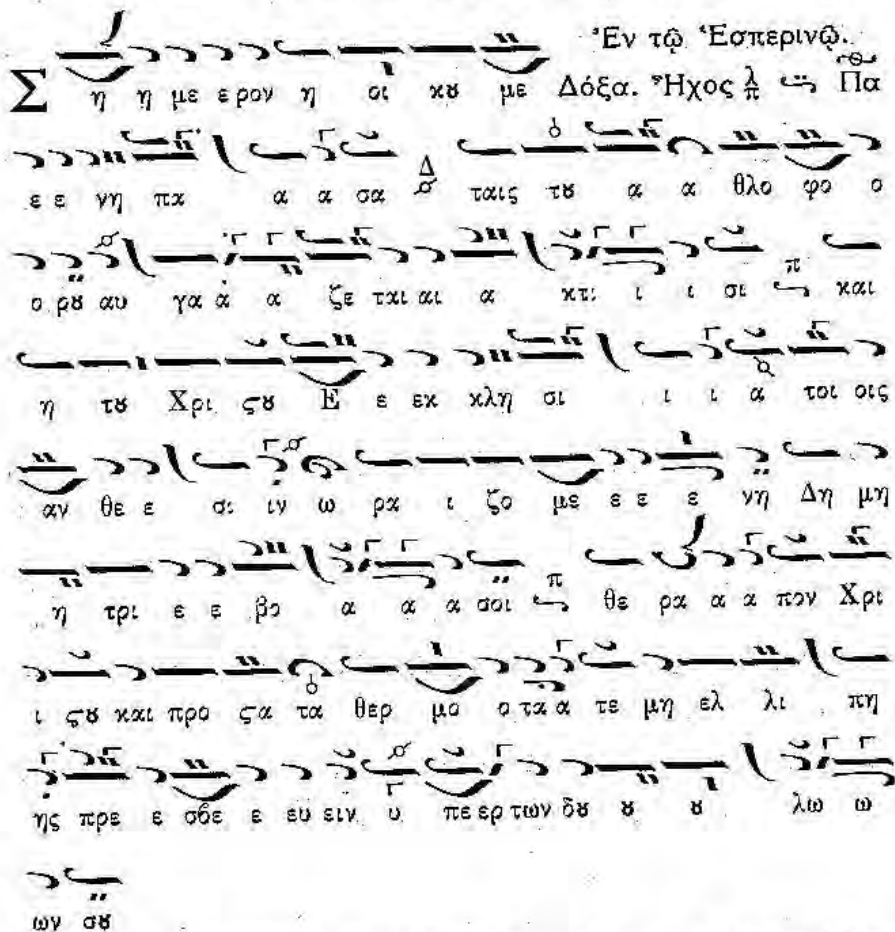 Ἐν τῷ Ἑσπερινῷ.
Δόξα. Ἦχος λ π Πα
Σ η η με ε ρον η οι κȣ με
ε ε νη πα α α σα Δ ταις τȣ α α θλο φο ο
ο ρȣ αυ γα α α ζε ται αι α κτι ι ι σι π και
η τȣ Χρι ϛȣ Ε ε εκ κλη σι ι ι α τοι οις
αν θε ε σι ιν ω ρα ι ζο με ε ε ε νη Δη μη
η τρι ε ε βο α α α σοι π θε ρα α α πον Χρι
ι ϛȣ και προ ϛα τα θερ μο ο τα α τε μη ελ λι πη
ης πρε ε σβε ε ευ ειν υ πε ερ των δȣ ȣ ȣ λω ω
ων σȣ